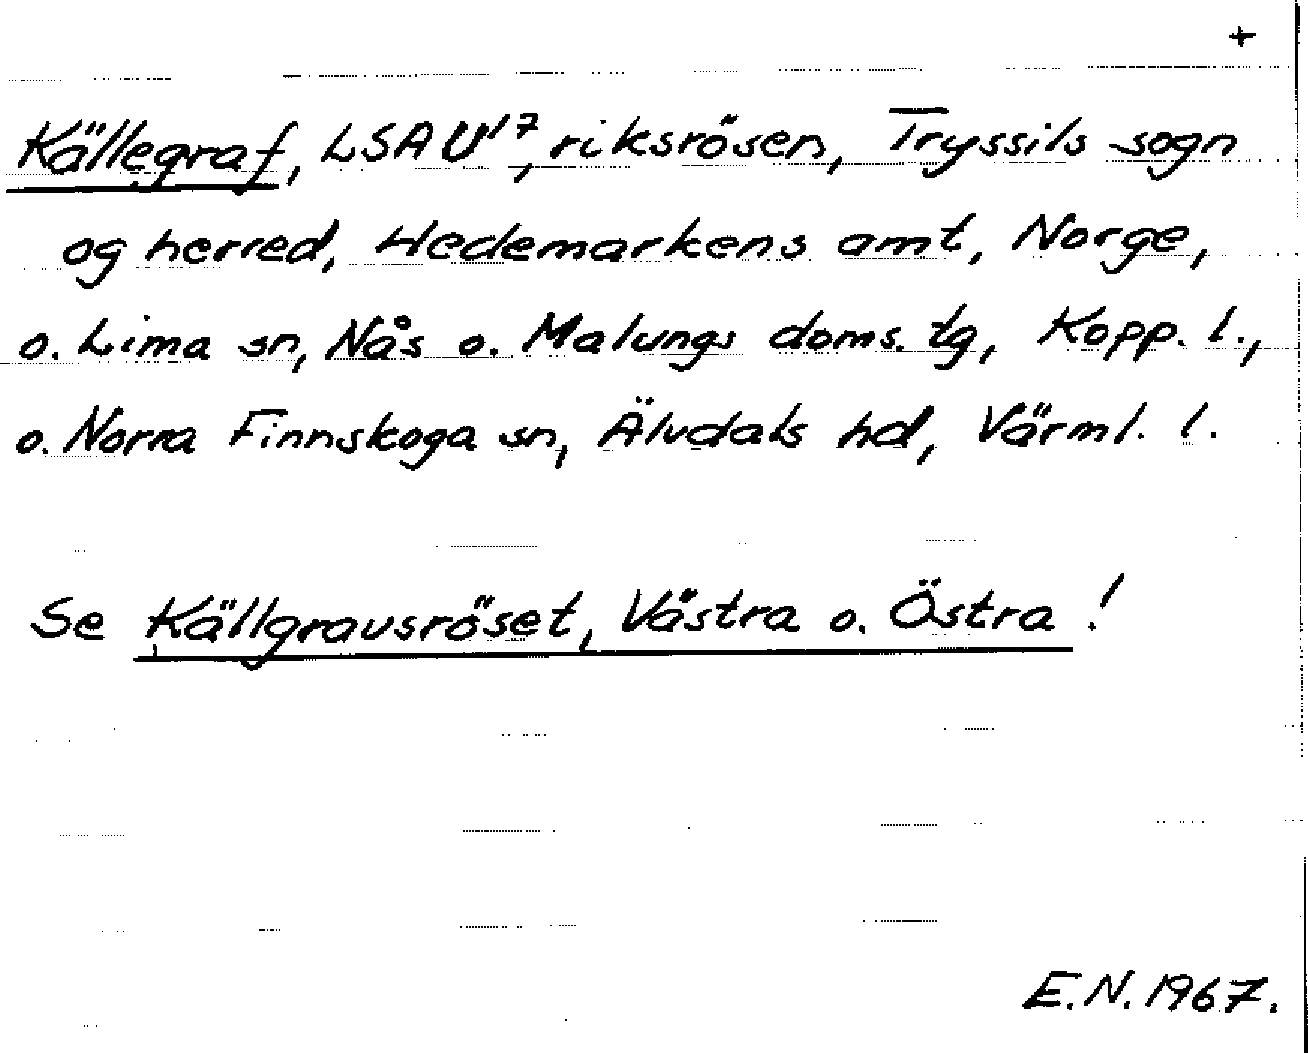 +
Källegraf, LSA U'17, riksrösen, Tryssils sogn
og herred, Hedemarkens amt, Norge,
o. Lima sn, Nås o. Malungs doms. tg, Kopp. l.,
o. Norra Finnskoga sn, Älvdals hd, Värml. l.
Se Källgravsröset, Västra o. Östra!
E.N. 1967.